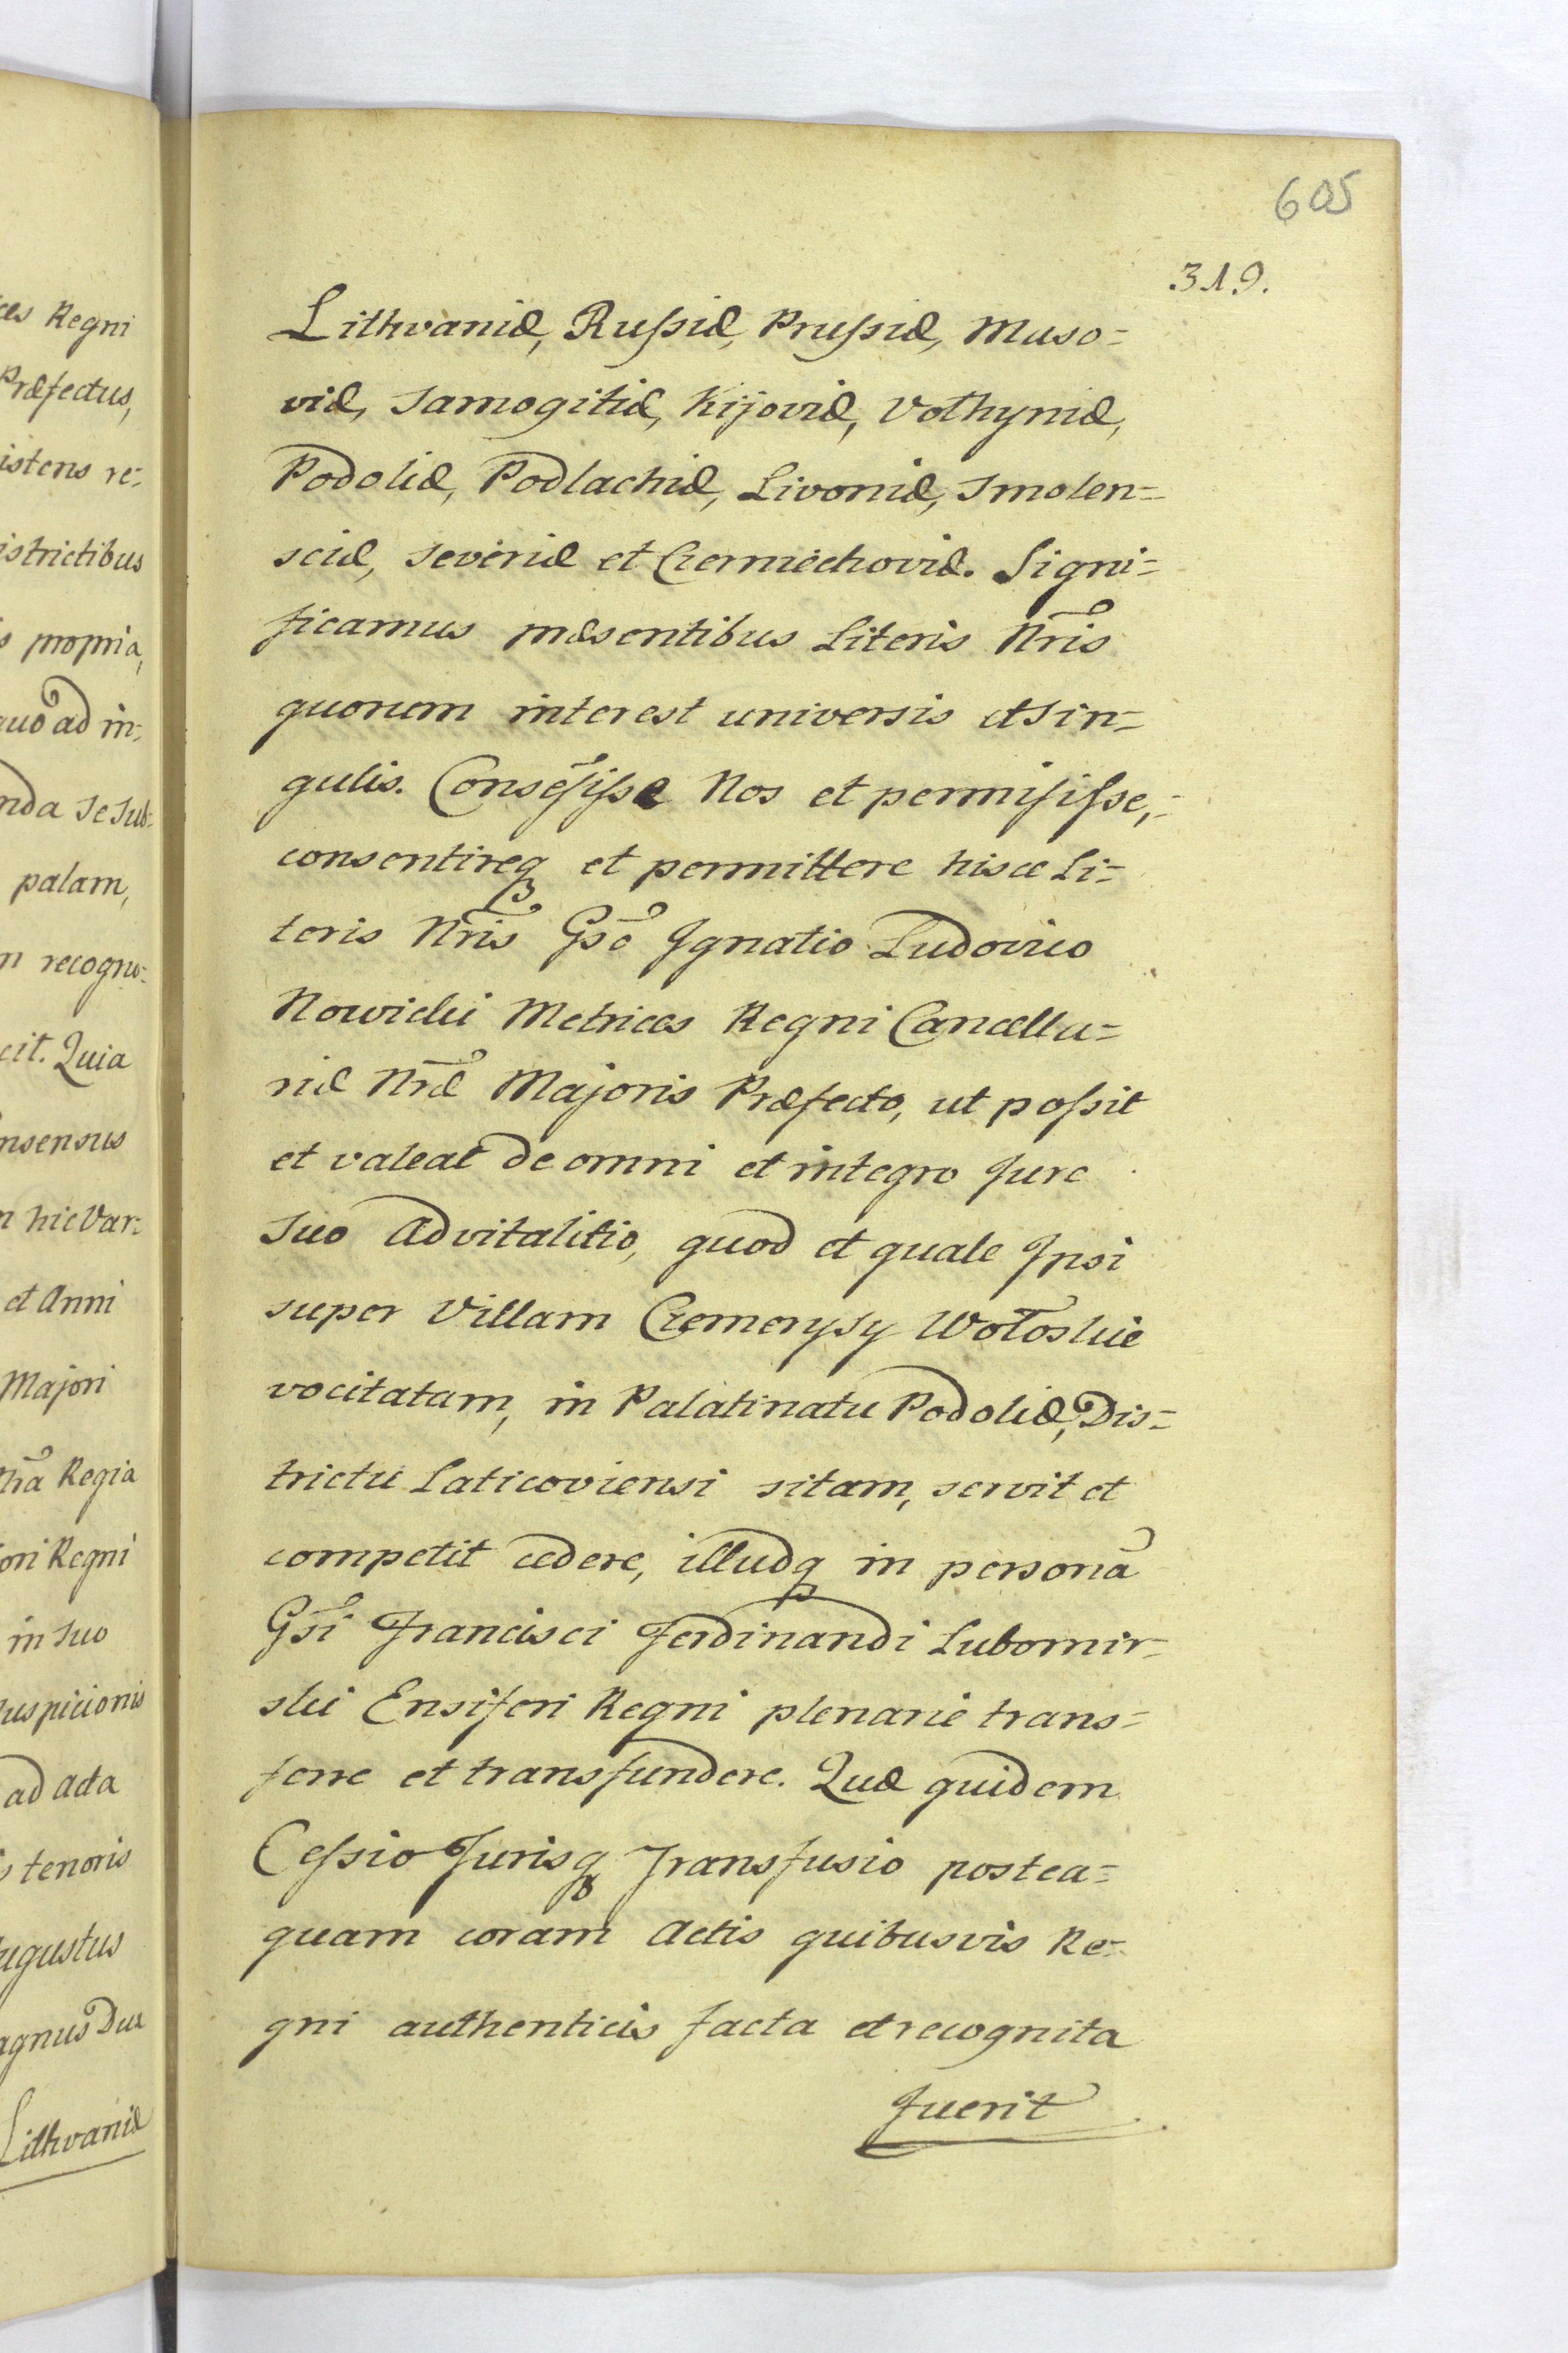 605
319.
Lithvaniæ, Rußiæ, Prußiæ, Maso=
viæ, Samogitiæ, Kijoviæ, Volhyniæ,
Podoliæ, Podlachiæ, Livoniæ, Smolen=
sciæ, Severiæ et Czerniechoviæ. Signi=
ficamus præsentibus Literis Nr̃is
quorum interest universis et Sin=
gulis. Conse͂sißse Nos et permisißse,=
consentireq et permittere hisce Li=
teris Nr̃is Gs̃o Ignatio Ludovico
Nowicki Metrices Regni Cancella=
riæ Nr̃æ Majoris Præfecto, ut poßit
et valeat de omni et integro Jure
Suo Advitalitio, quod et quale Ipsi
super Villam Czemerysy Wołoskie
vocitatam, in Palatinatu Podoliæ, Dis=
trictu Laticoviensi sitam, servit et
competit cedere, illudq in personã
Gs̃i Francisci Ferdinandi Lubomir=
ski Ensiferi Regni plenarie trans=
ferre et transfundere. Quæ quidem
Ceßio Jurisq Transfusio postea=
quam coram Actis quibusvis Re=
gni authenticis facta et recognita
fuerit
ces Regni
Præfectus,
istens re=
istrictibus
propria,
quo ad in=
nda Se Sub=
palam,
recogno=
cit. Quia
nsensus
hic Var=
et Anni
Majori
Regia
ori Regni
in Suo
uspicionis
ad Acta
tenoris
ugustus
agnus Dux
Lithvaniæ